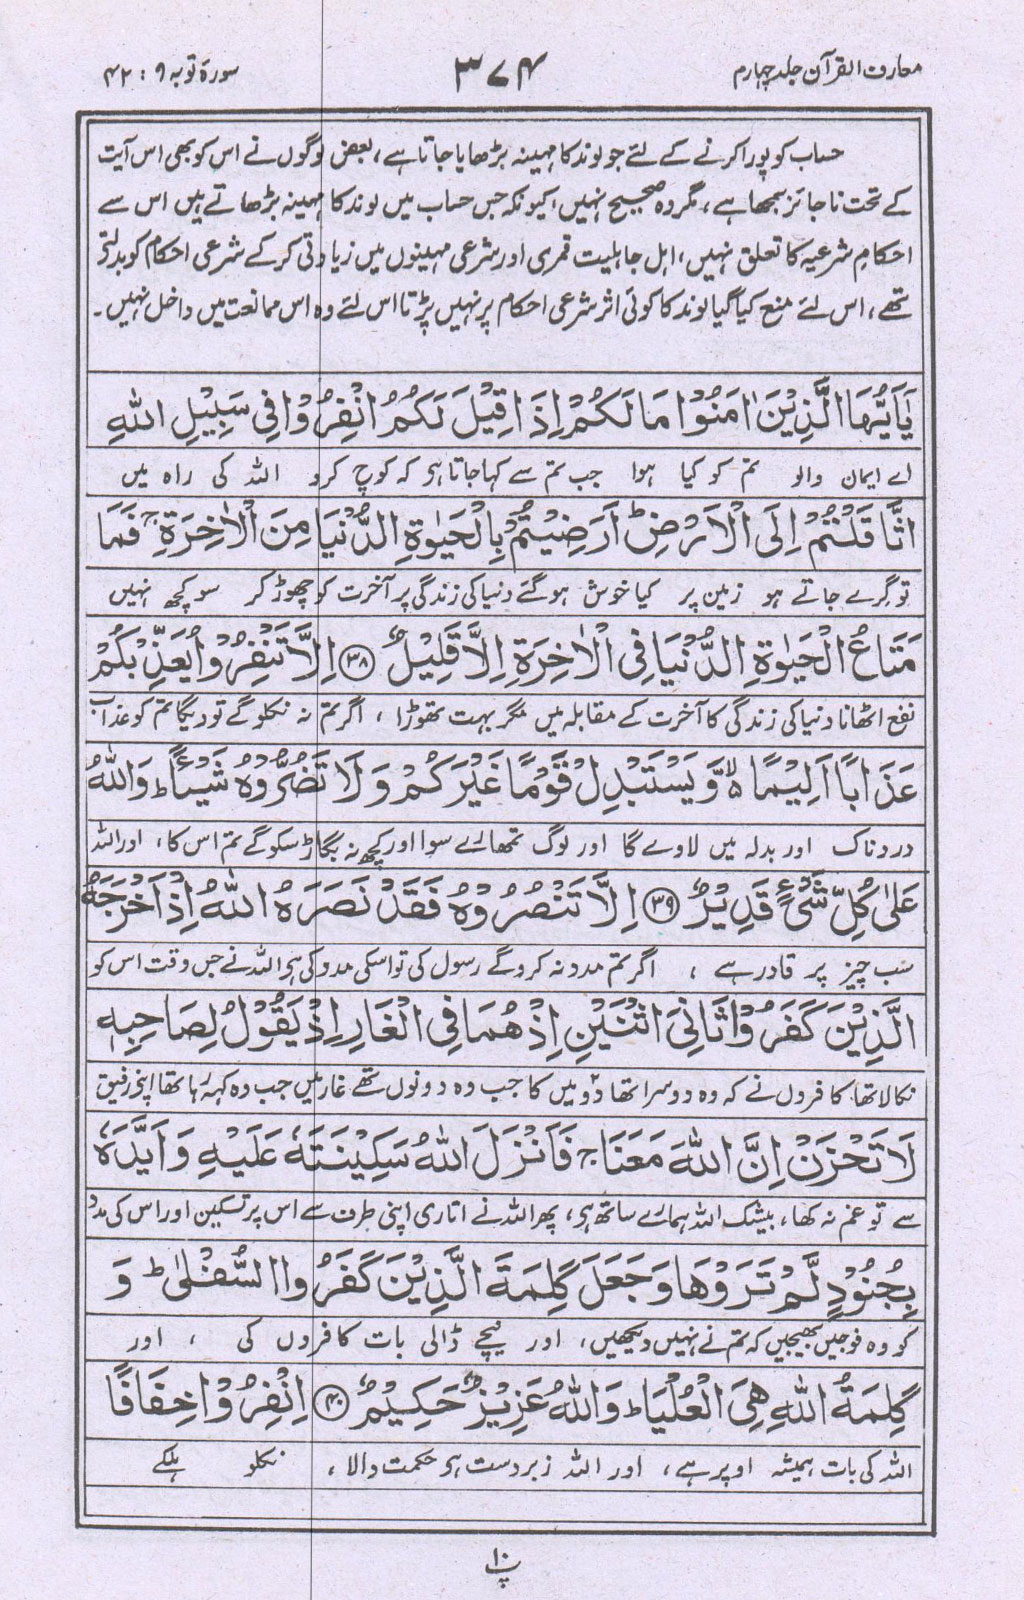 معارف القرآن جلد چہارم
۳۷۴
سورۃ توبہ ۹ : ۴۲
حساب کو پورا کرنے کے لئے جو لوند کا مہینہ بڑھایا جاتا ہے، بعض لوگوں نے اس کو بھی اس آیت
کے تحت ناجائز سمجھا ہے، مگر وہ صحیح نہیں، کیونکہ جس حساب میں لوند کا مہینہ بڑھاتے ہیں اس سے
احکامِ شرعیہ کا تعلق نہیں، اہل جاہلیت قمری اور شرعی مہینوں میں زیادتی کرکے شرعی احکام کو بدلتے
تھے، اس لئے منع کیا گیا لوند کا کوئی اثر شرعی احکام پر نہیں پڑتا اس لئے وہ اس ممانعت میں داخل نہیں۔
يٰٓاَيُّهَا الَّذِيْنَ اٰمَنُوْا مَا لَكُمْ اِذَا قِيْلَ لَكُمُ انْفِرُوْا فِيْ سَبِيْلِ اللّٰهِ
اے ایمان والو تم کو کیا ہوا جب تم سے کہا جاتا ہو کہ کوچ کرو اللہ کی راہ میں
اثَّاقَلْتُمْ اِلَى الْاَرْضِ ؕ اَرَضِيْتُمْ بِالْحَيٰوةِ الدُّنْيَا مِنَ الْاٰخِرَةِ ۚ فَمَا
تو گرے جاتے ہو زمین پر کیا خوش ہو گئے دنیا کی زندگی پر آخرت کو چھوڑ کر سو کچھ نہیں
مَتَاعُ الْحَيٰوةِ الدُّنْيَا فِي الْاٰخِرَةِ اِلَّا قَلِيْلٌ ﴿۳۸﴾ اِلَّا تَنْفِرُوْا يُعَذِّبْكُمْ
نفع اٹھانا دنیا کی زندگی کا آخرت کے مقابلہ میں مگر بہت تھوڑا ، اگر تم نہ نکلو گے تو دیگا تم کو عذاب
عَذَابًا اَلِيْمًا ۙ وَّيَسْتَبْدِلْ قَوْمًا غَيْرَكُمْ وَلَا تَضُرُّوْهُ شَيْـًٔا ؕ وَاللّٰهُ
دردناک اور بدلہ میں لاوے گا اور لوگ تمھارے سوا اور کچھ نہ بگاڑ سکو گے تم اس کا، اور اللہ
عَلٰى كُلِّ شَيْءٍ قَدِيْرٌ ﴿۳۹﴾ اِلَّا تَنْصُرُوْهُ فَقَدْ نَصَرَهُ اللّٰهُ اِذْ اَخْرَجَهُ
سب چیز پر قادر ہے ، اگر تم مدد نہ کرو گے رسول کی تو اسکی مدد کی ہو اللہ نے جس وقت اس کو
الَّذِيْنَ كَفَرُوْا ثَانِيَ اثْنَيْنِ اِذْ هُمَا فِي الْغَارِ اِذْ يَقُوْلُ لِصَاحِبِهٖ
نکالا تھا کافروں نے کہ وہ دوسرا تھا دو میں کا جب وہ دونوں تھے غار میں جب وہ کہہ رہا تھا اپنے رفیق
لَا تَحْزَنْ اِنَّ اللّٰهَ مَعَنَا ۚ فَاَنْزَلَ اللّٰهُ سَكِيْنَتَهٗ عَلَيْهِ وَاَيَّدَهٗ
سے تو غم نہ کھا، بیشک اللہ ہمارے ساتھ ہو، پھر اللہ نے اتاری اپنی طرف سے اس پر تسکین اور اس کی مدد
بِجُنُوْدٍ لَّمْ تَرَوْهَا وَجَعَلَ كَلِمَةَ الَّذِيْنَ كَفَرُوا السُّفْلٰى ؕ وَ
کو وہ فوجیں بھیجیں کہ تم نے نہیں دیکھیں، اور نیچے ڈالی بات کافروں کی ، اور
كَلِمَةُ اللّٰهِ هِيَ الْعُلْيَا ؕ وَاللّٰهُ عَزِيْزٌ حَكِيْمٌ ﴿۴۰﴾ اِنْفِرُوْا خِفَافًا
اللہ کی بات ہمیشہ اوپر ہے، اور اللہ زبردست ہو حکمت والا، نکلو ہلکے
پ ۱۰